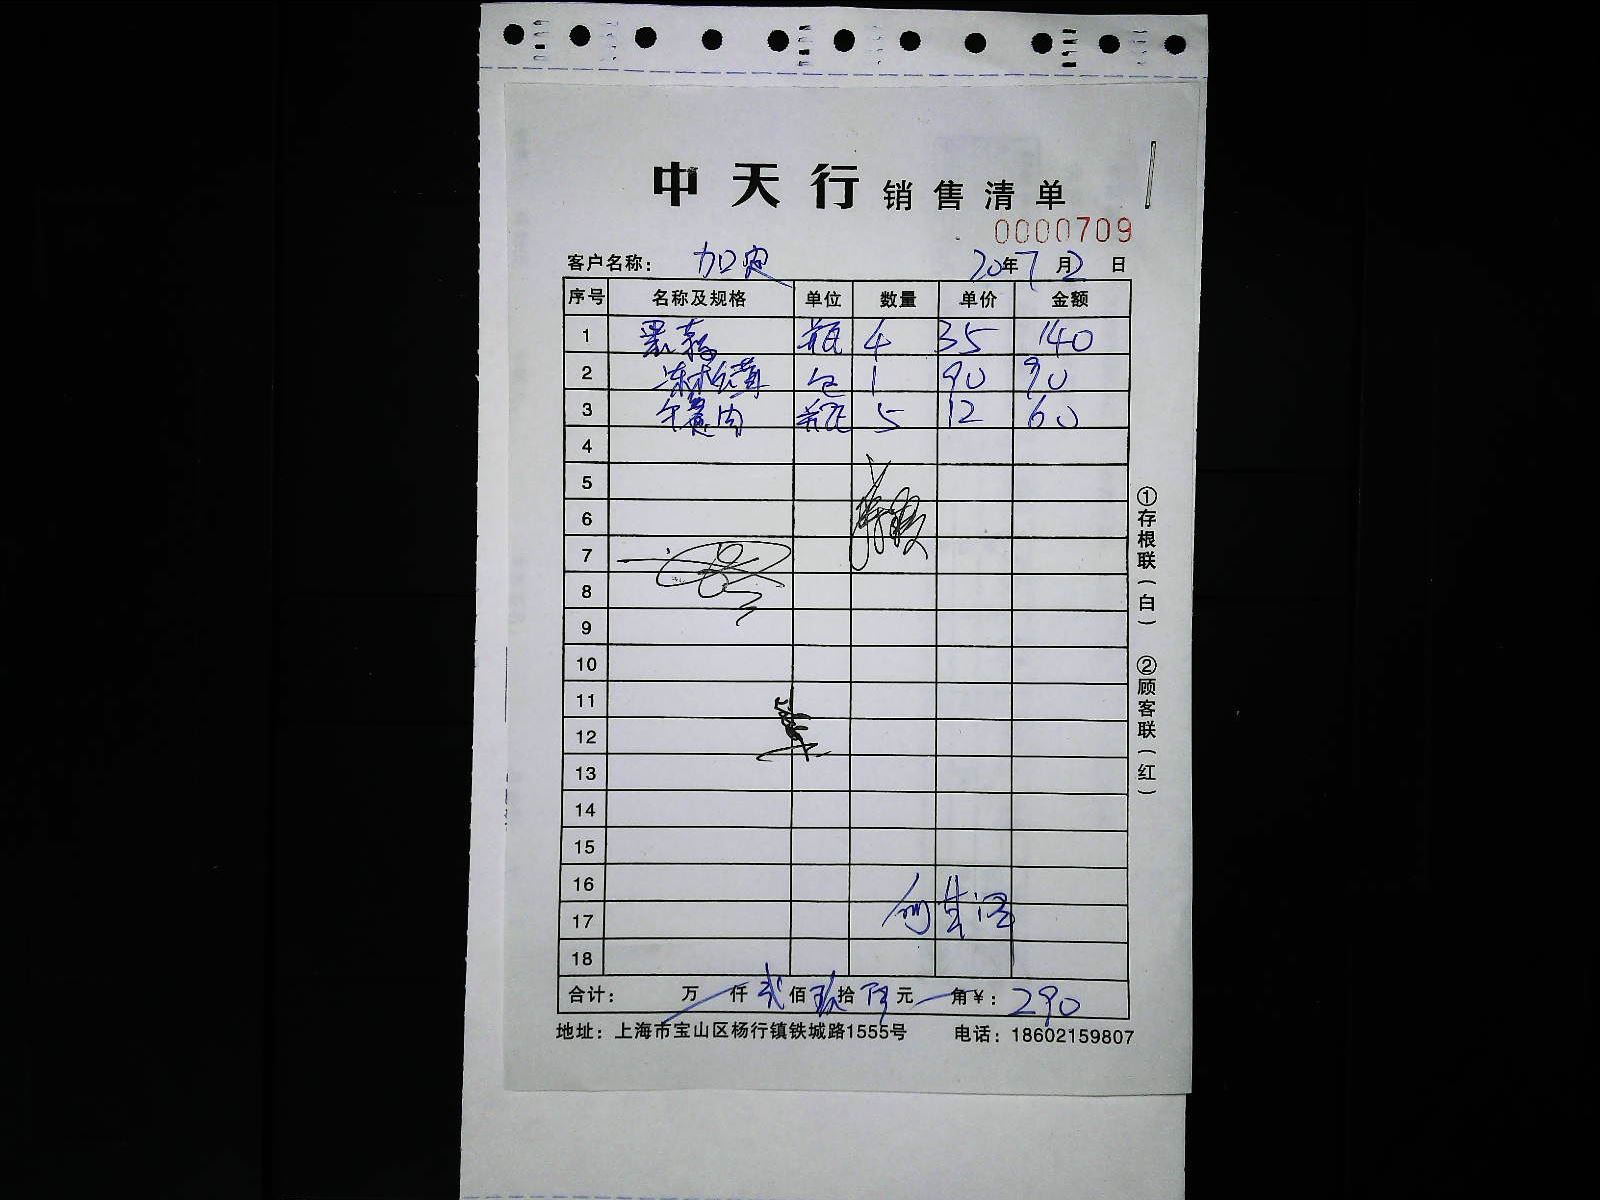 中天行 销售清单
0000709
客户名称： 加 20年7月2日
序号 名称及规格 单位 数量 单价 金额
1 瓶 4 35 140
2 包 1 90 90
3 午餐肉 瓶 5 12 60
4
5
6
7
8
9
10
11
12
13
14
15
16
17
18
合计： 万 仟 贰 佰 玖 拾 元 角 ￥：290
地址：上海市宝山区杨行镇铁城路1555号 电话：18602159807
①存根联（白） ②顾客联（红）